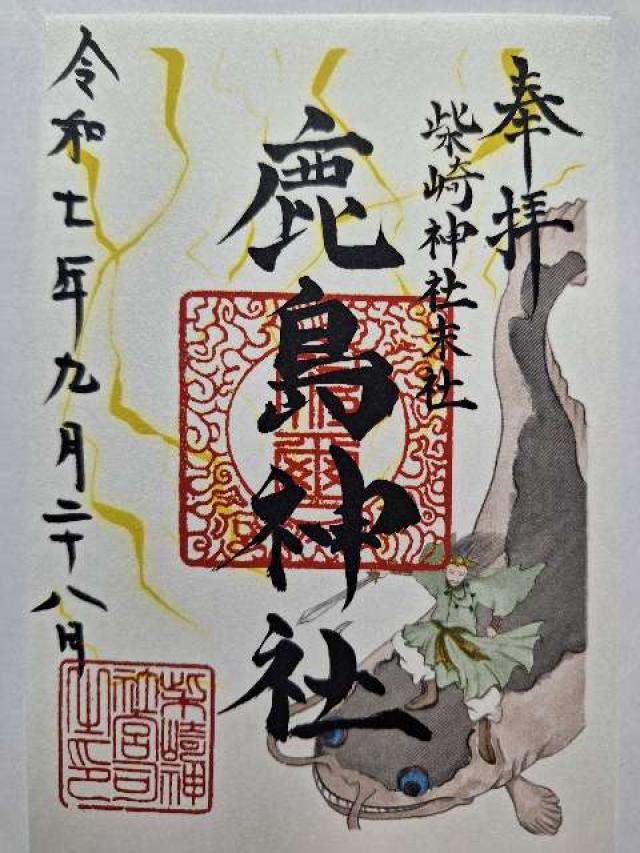 奉拝
柴崎神社末社
鹿島神社
令和七年九月二十八日
柴崎神
社宮司
之印